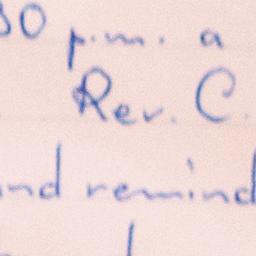 30 p.m. a
Rev. C.
and remind